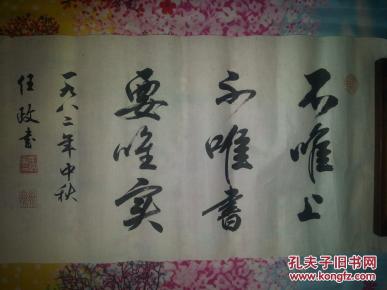 不唯上
不唯書
要唯实
一九八二年中秋
任政書
孔夫子旧书网